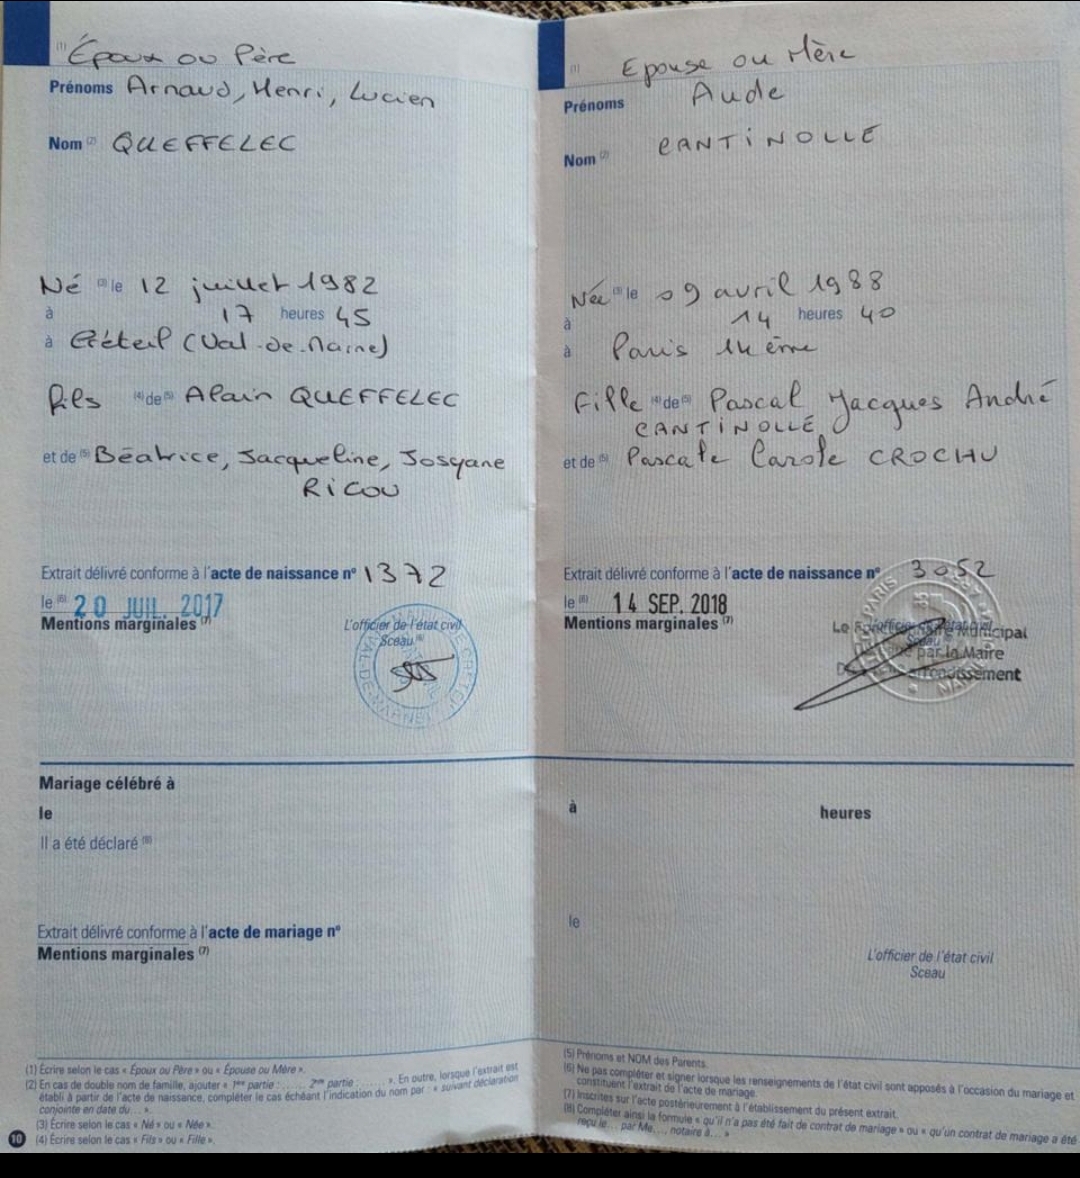 (1) Époux ou Père
Prénoms Arnaud, Henri, Lucien
Nom (2) QUEFFELEC
Né (3) le 12 juillet 1982
à 17 heures 45
à Créteil (Val-de-Marne)
fils (4) de (5) Alain QUEFFELEC
et de (5) Béatrice, Jacqueline, Josyane
RICOU
Extrait délivré conforme à l'acte de naissance n° 1372
le (6) 20 JUIL. 2017
Mentions marginales (7)
L'officier de l'état civil
Sceau (6)
MAIRIE DE CRETEIL
VAL-DE-MARNE
(1) Epouse ou Mère
Prénoms Aude
Nom (2) CANTINOLLE
Née (3) le 09 avril 1988
à 14 heures 40
à Paris 14ème
Fille (4) de (5) Pascal Jacques André
CANTINOLLE
et de (5) Pascale Carole CROCHU
Extrait délivré conforme à l'acte de naissance n° 3052
le (6) 14 SEP. 2018
Mentions marginales (7)
Le Municipal
par la Maire
arrondissement
PARIS
Mariage célébré à
le
à heures
Il a été déclaré (8)
Extrait délivré conforme à l'acte de mariage n°
le
Mentions marginales (7)
L'officier de l'état civil
Sceau
(1) Écrire selon le cas « Époux ou Père » ou « Épouse ou Mère ».
(2) En cas de double nom de famille, ajouter « 1ère partie : ...... 2ème partie : ...... ». En outre, lorsque l'extrait est
établi à partir de l'acte de naissance, compléter le cas échéant l'indication du nom par : « suivant déclaration
conjointe en date du... ».
(3) Écrire selon le cas « Né » ou « Née ».
(4) Écrire selon le cas « Fils » ou « Fille ».
10
(5) Prénoms et NOM des Parents.
(6) Ne pas compléter et signer lorsque les renseignements de l'état civil sont apposés à l'occasion du mariage et
constituent l'extrait de l'acte de mariage.
(7) Inscrites sur l'acte postérieurement à l'établissement du présent extrait.
(8) Compléter ainsi la formule « qu'il n'a pas été fait de contrat de mariage » ou « qu'un contrat de mariage a été
reçu le... par Me...., notaire à... »